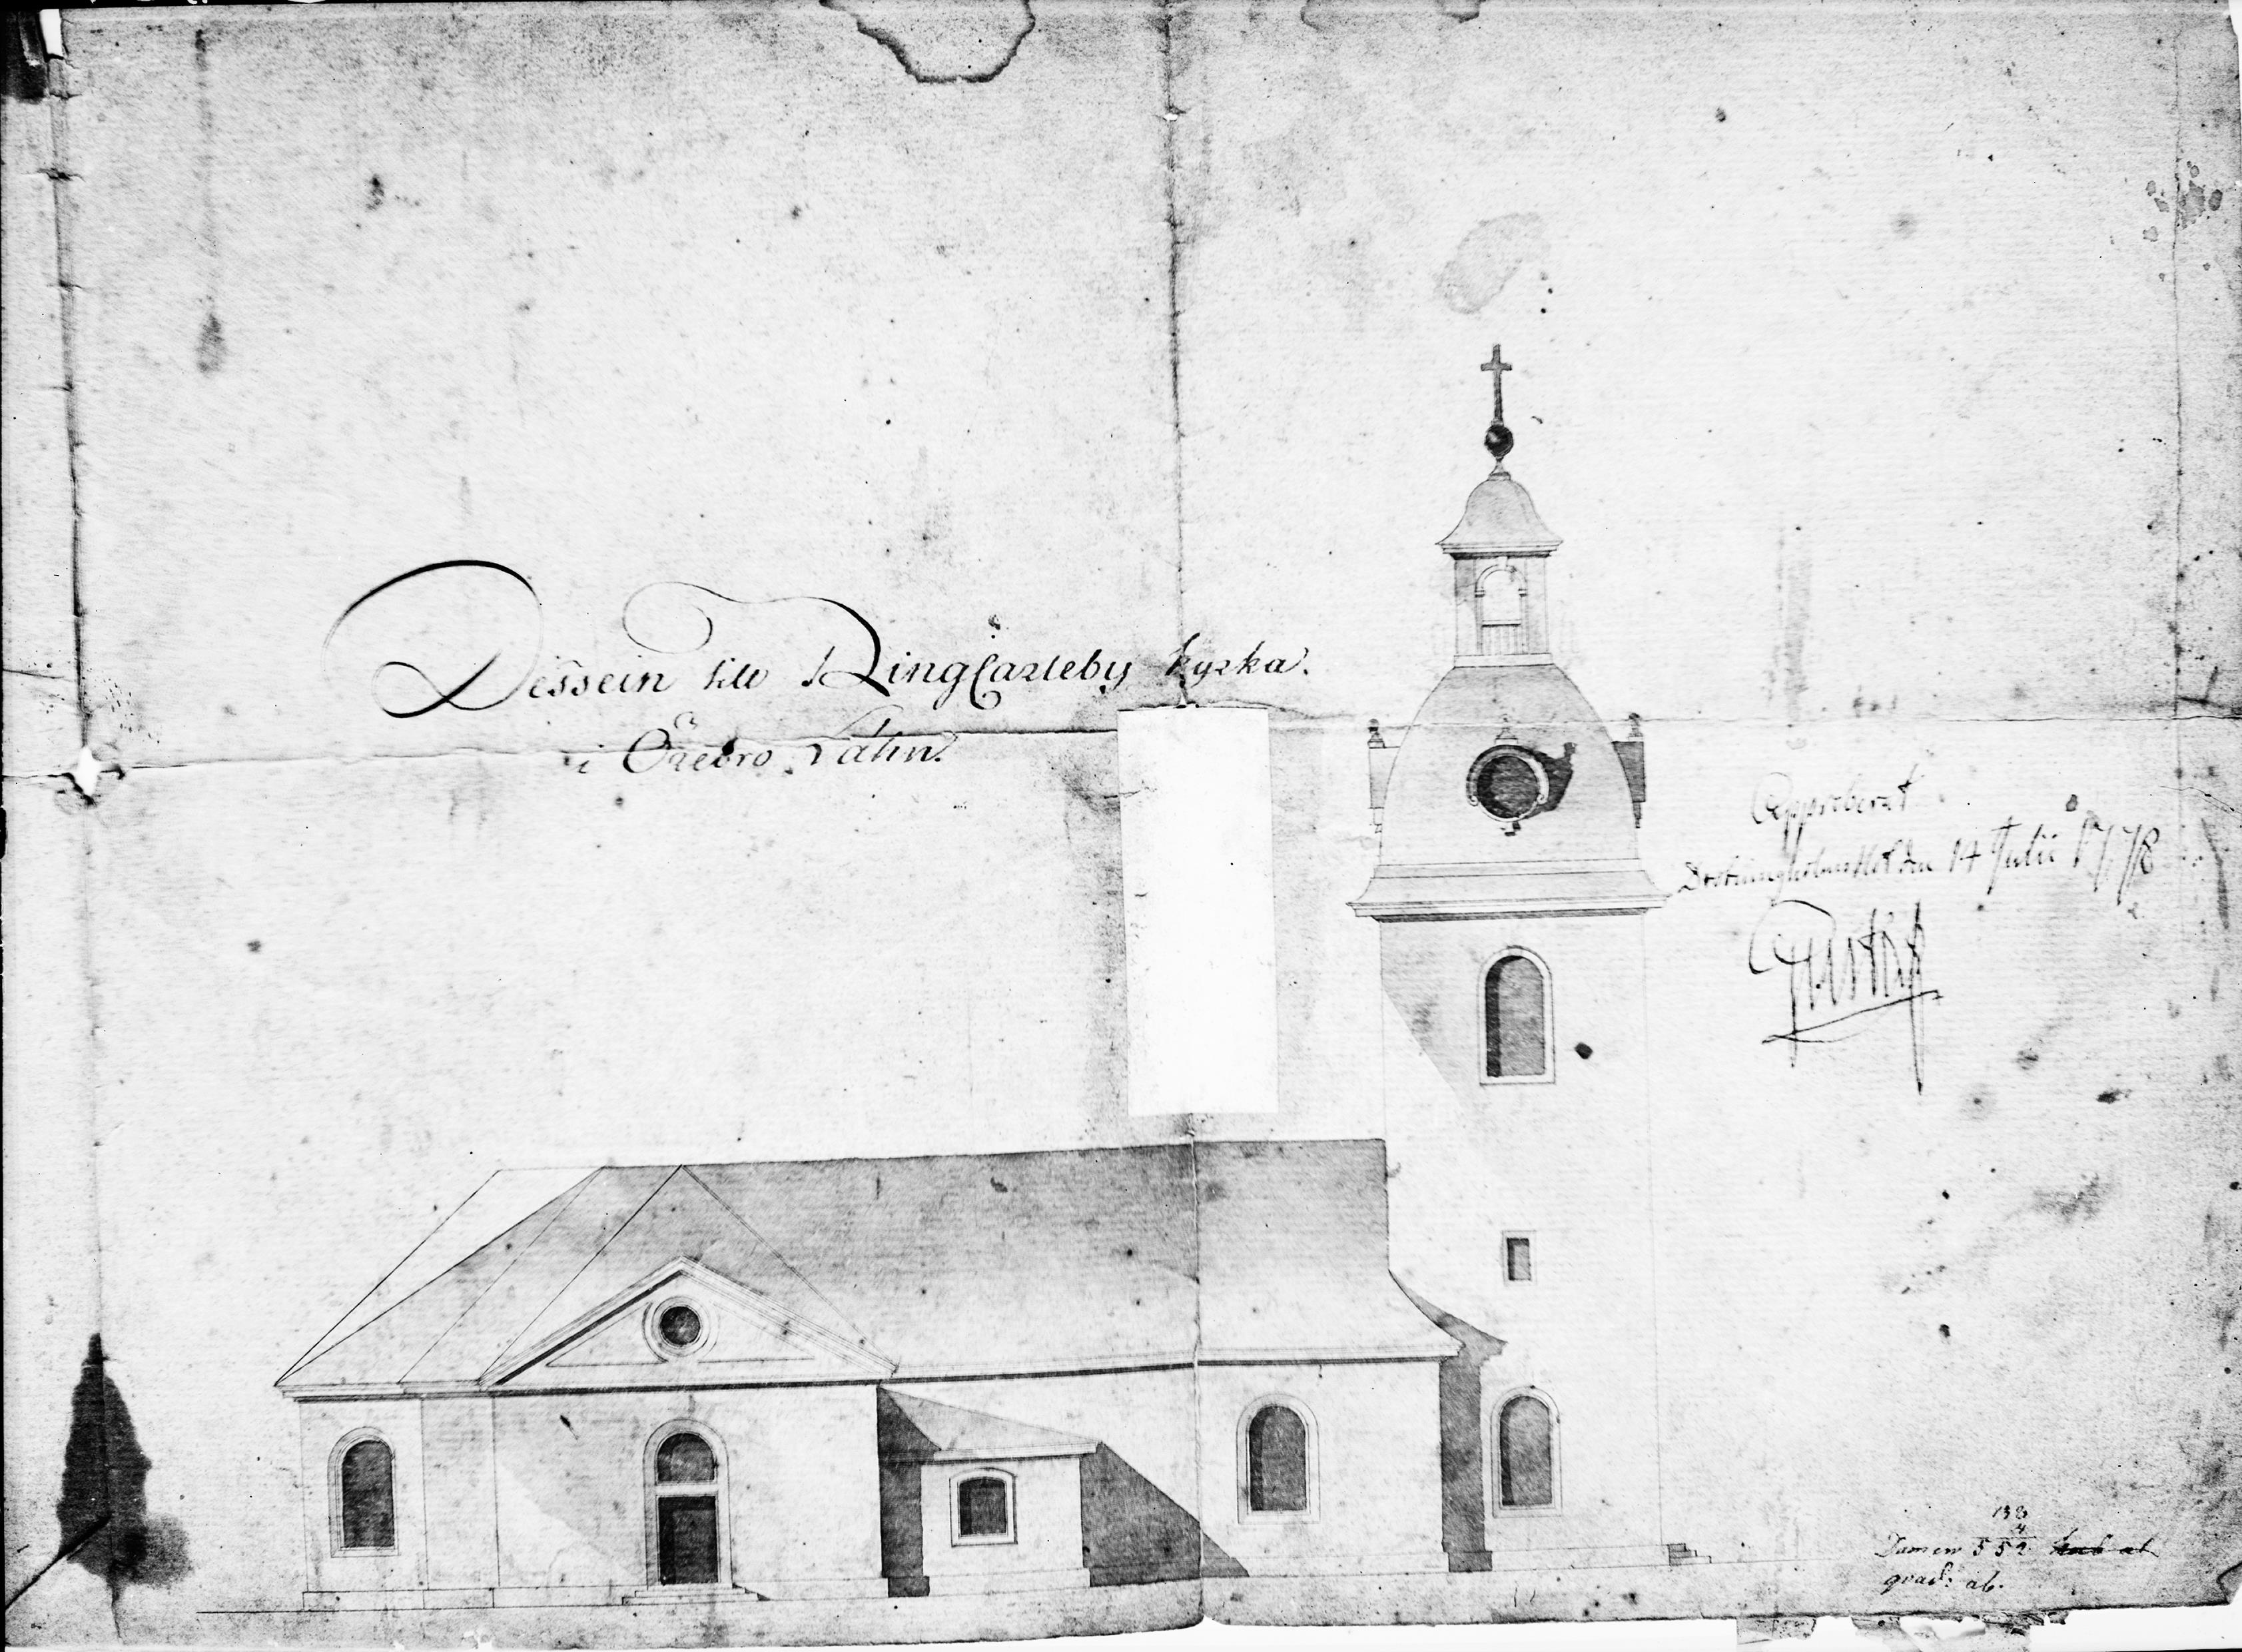 Dessein till RingCarleby kyrka.
i Örebro Lähn.
Approberat
Drottningholms Slott den 14 Julii 1778
Gustaf
138
4
552
qvad: al.